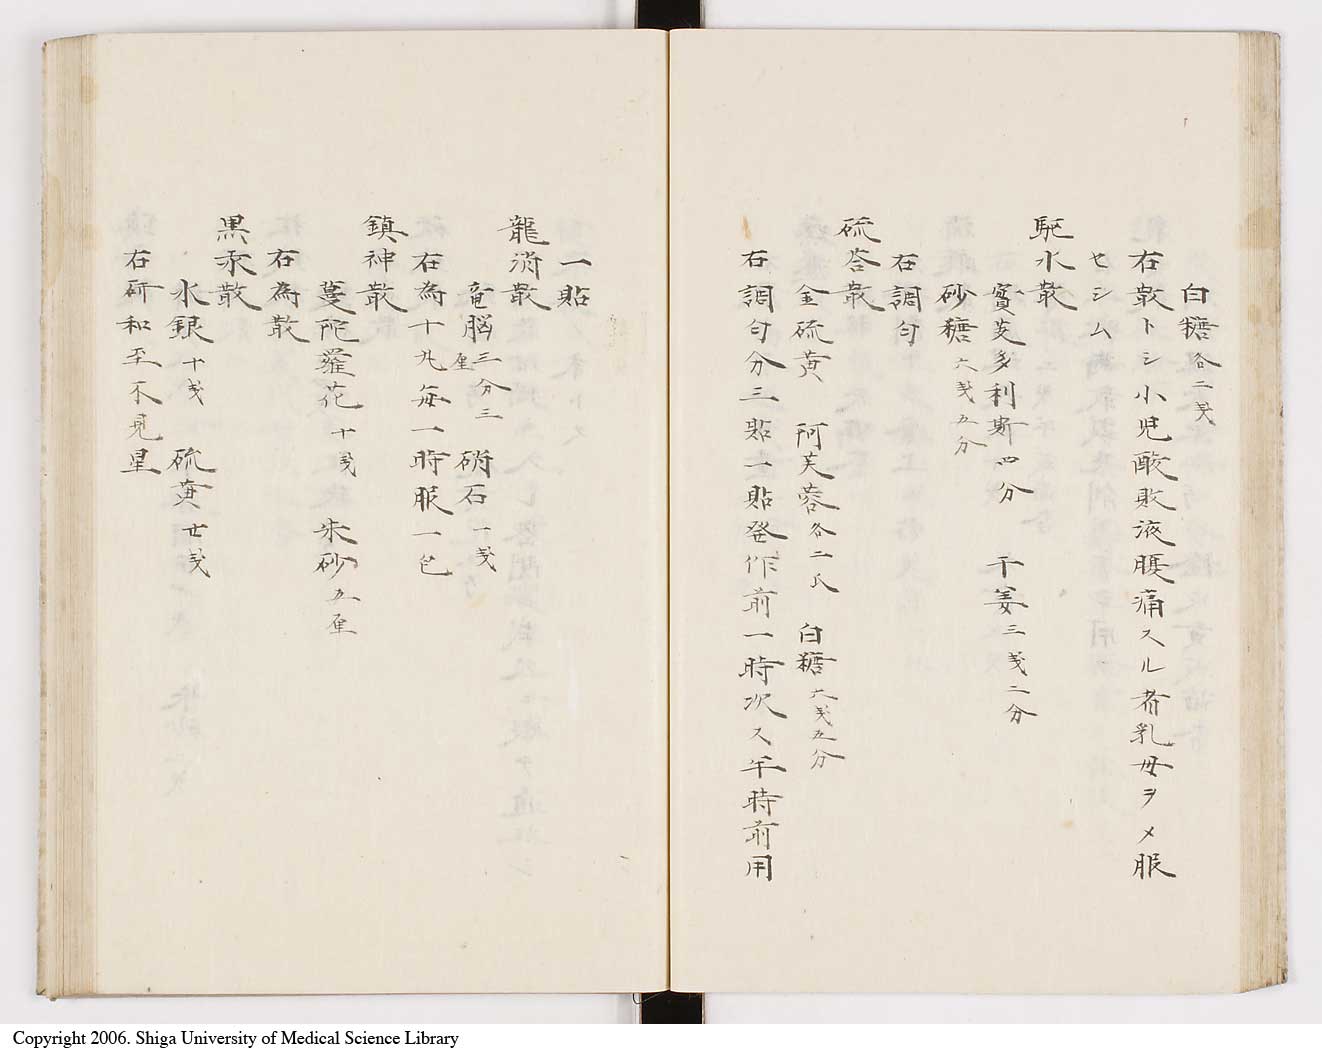 白糖各二戔
右散トシ小児酸敗液腹痛スル者乳母ヲメ服
セシム
駆水散
實芰多利斯四分 干姜三戔二分
砂糖六戔五分
右調匀
硫蓉散
金硫黄 阿芙蓉各二氏 白糖六戔五分
右調匀分三貼一貼発作前一時次又半時前用
一貼
龍消散
竜脳三分三厘 硝石一戔
右為十丸毎一時服一包
鎮神散
蔓陀羅花十戔 朱砂五厘
右為散
黒汞散
水銀十戔 硫黄廿戔
右研和至不見星
Copyright 2006. Shiga University of Medical Science Library